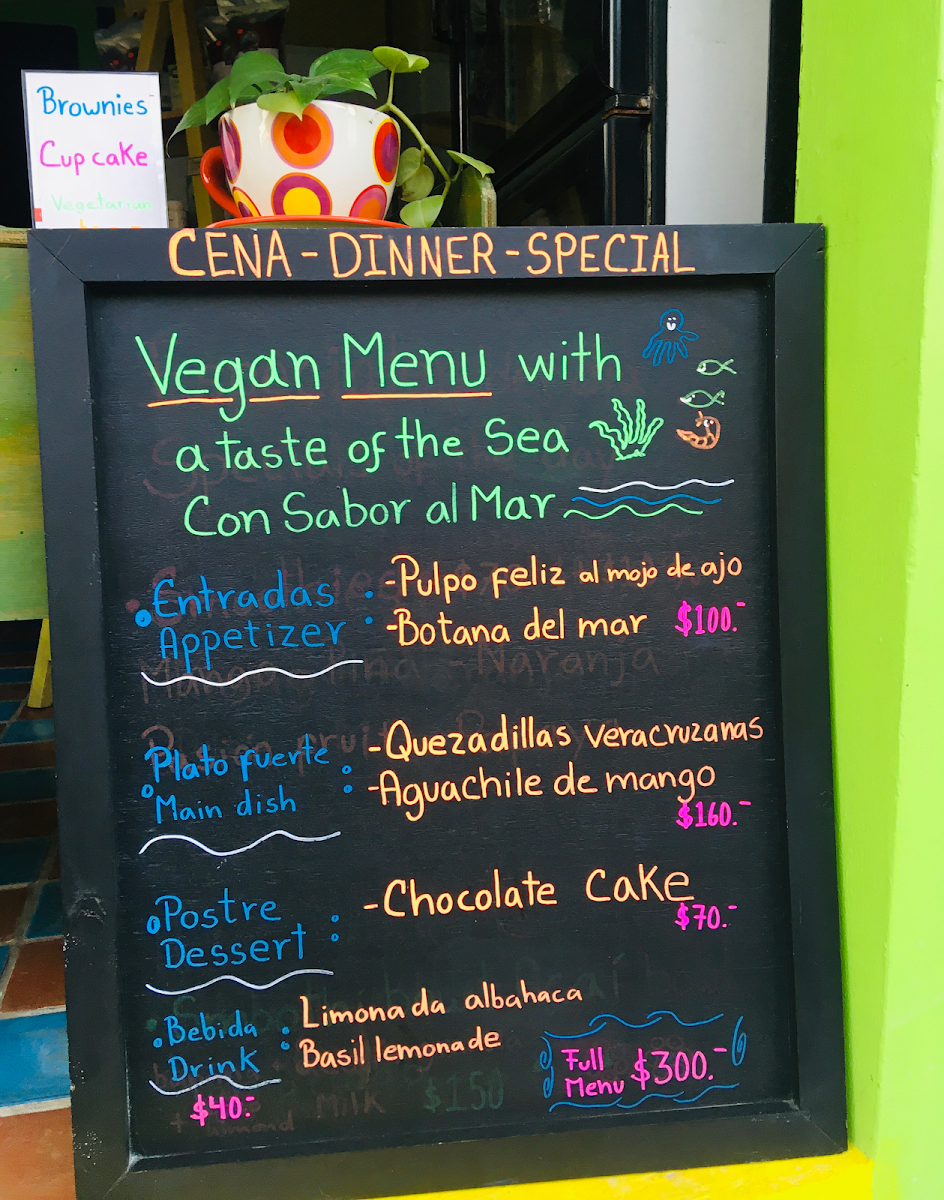 Brownies
Cup cake
Vegetarian
CENA - DINNER - SPECIAL
Vegan Menu with
a taste of the Sea
Con Sabor al Mar
Entradas
Appetizer
-Pulpo feliz al mojo de ajo
-Botana del mar $100.-
Plato fuerte
Main dish
-Quezadillas veracruzanas
-Aguachile de mango
$160.-
Postre
Dessert
-Chocolate Cake
$70.-
Bebida
Drink
$40.-
Limonada albahaca
Basil lemonade
Full
Menu $300.-
Mango - Piña - Naranja
Milk $150
+ almond